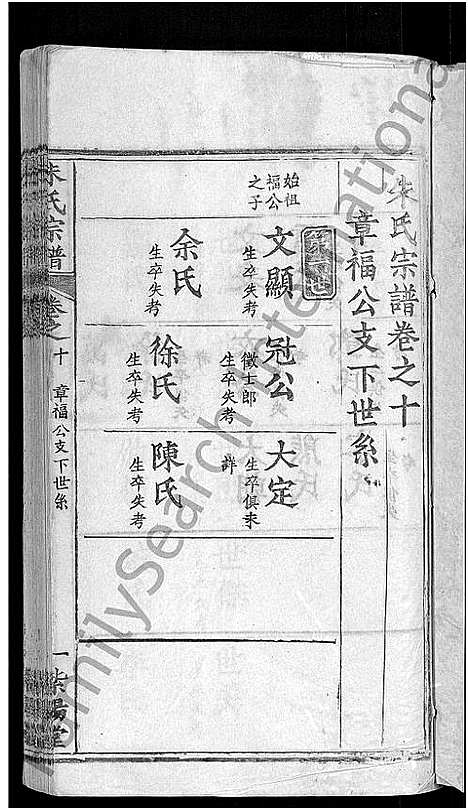 朱氏宗譜卷之十
章福公支下世系
始祖
福公
之子
文顯
生卒失考
余氏
生卒失考
冠公
徵士郎
生卒失考
徐氏
生卒失考
大定
生卒俱未
詳
陳氏
生卒失考
朱氏宗譜
卷之十
章福公支下世系
一
紫陽堂
FamilySearch International